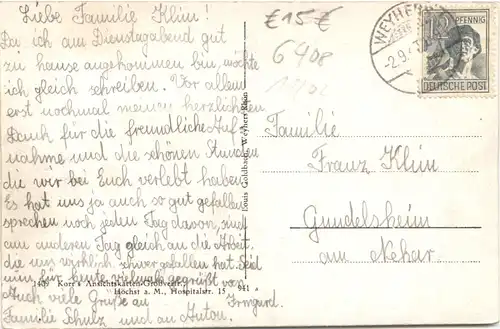 Liebe Familie Klim!
Da ich am Dienstagabend gut
zu hause angekommen bin, möchte
ich gleich schreiben. Vor allem
erst nochmal meinen herzlichsten
Dank für die freundliche Auf-
nahme und die schönen Stunden
die wir bei Euch verlebt haben.
Es hat uns ja auch so gut gefallen
sprechen noch jeden Tag davon, sind
am anderen Tag gleich an die Arbeit.
die uns wirklich schwer gefallen hat. Seid
nun für heute vielmals gegrüßt von
Auch viele Grüße an Irmgard.
Familie Schulz und an Anton.
1409 Korr's Ansichtskarten-Großvertr.,
Höchst a. M., Hospitalstr. 15 941
Louis Goldbach, Weyhers/Rhön
€15€
6408
WEYHERS
-2.9.4
12 PFENNIG
DEUTSCHE POST
Familie
Franz Klim
Gundelsheim
am Nekar.